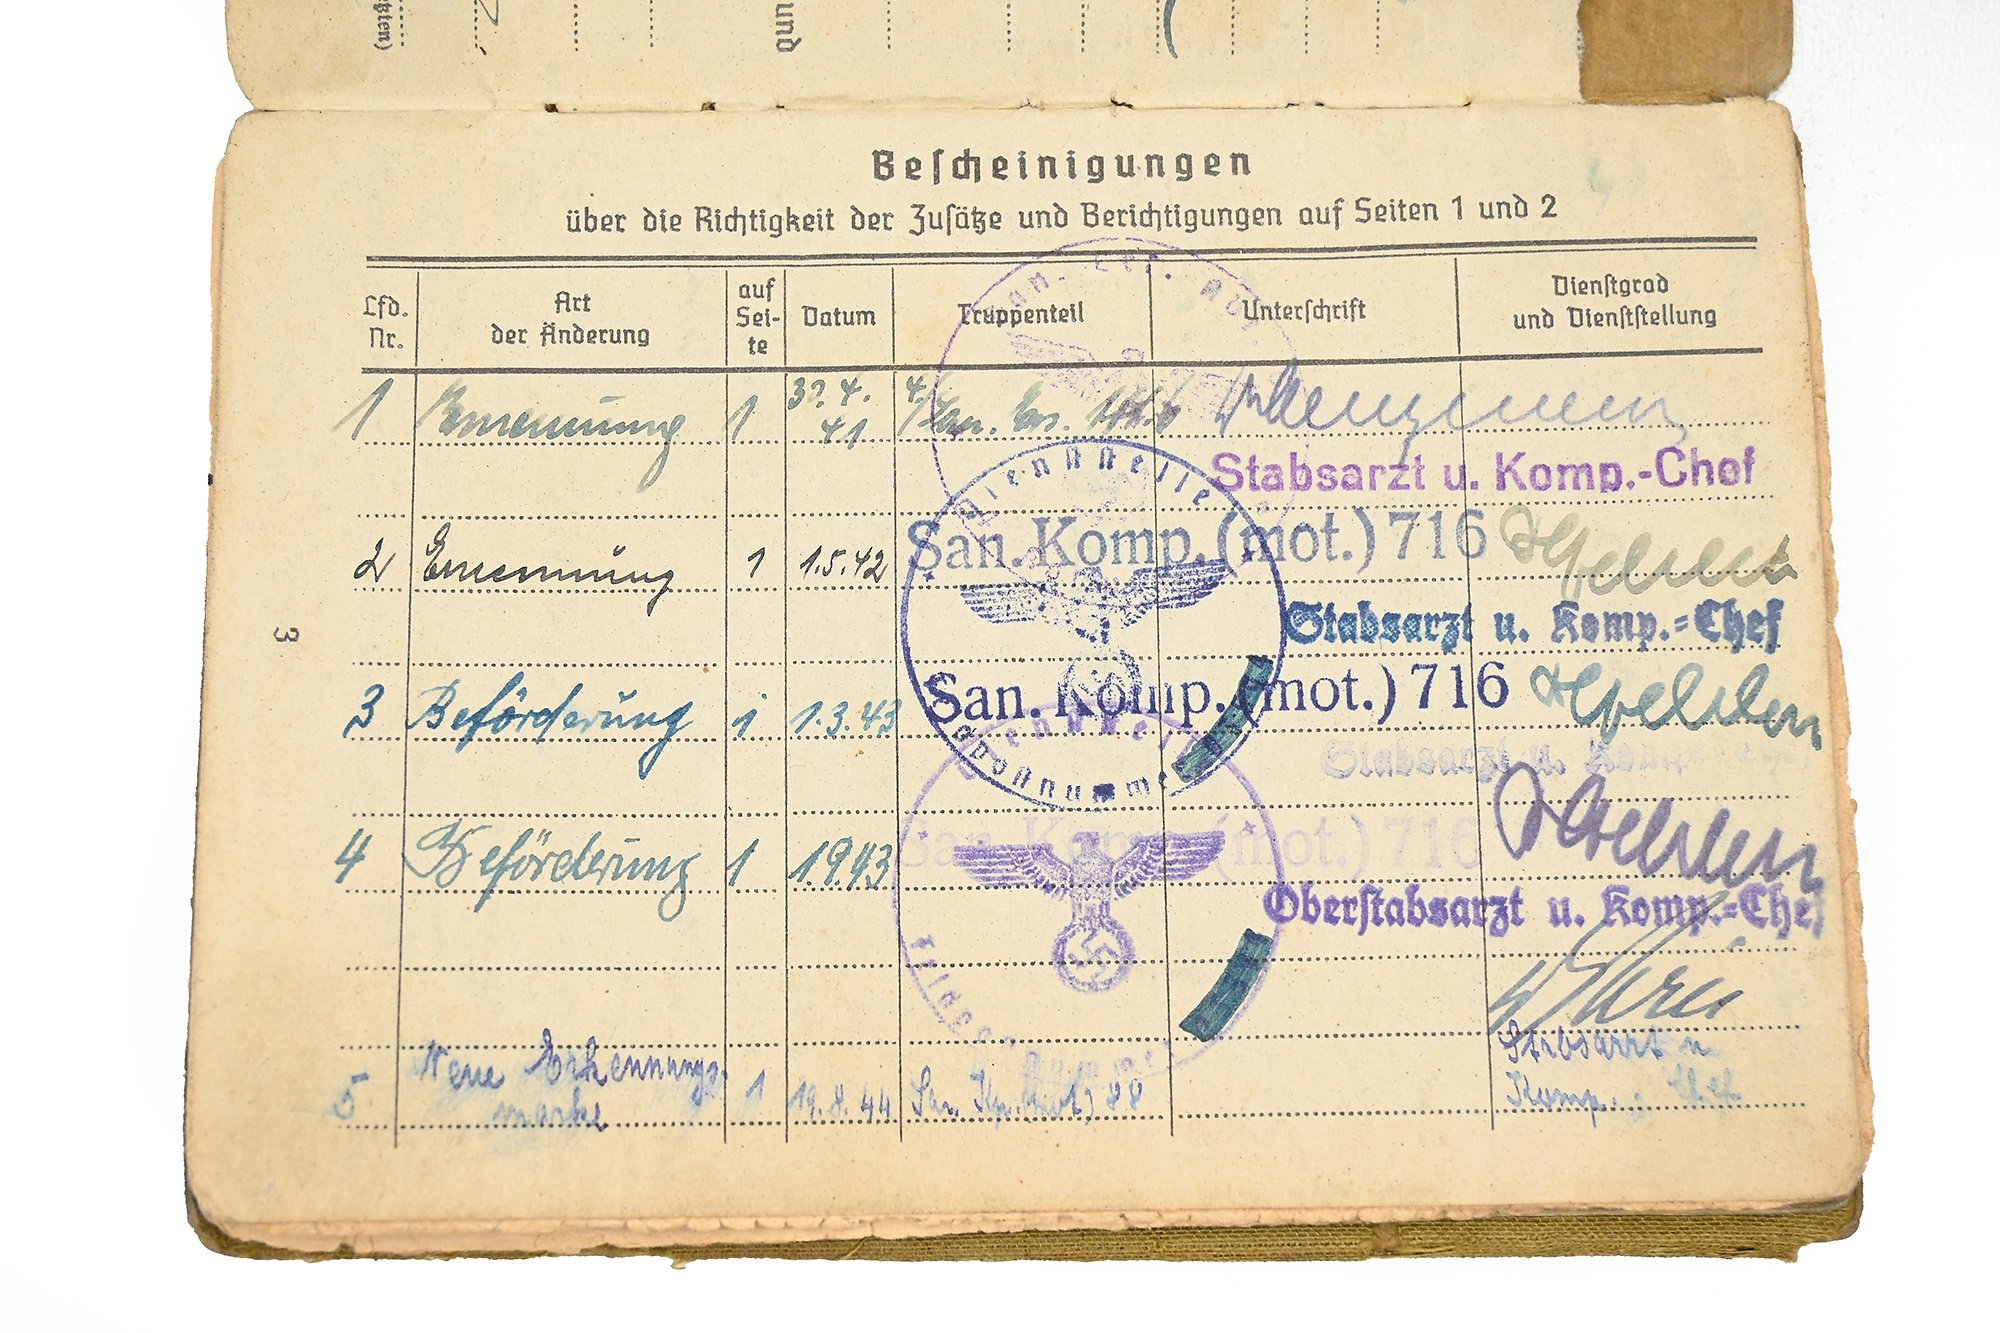 etzten)
und
Bescheinigungen
über die Richtigkeit der Zusätze und Berichtigungen auf Seiten 1 und 2
Lfd. Nr.
Art der Änderung
auf Sei- te
Datum
Truppenteil
Unterschrift
Dienstgrad und Dienststellung
1 Ernennung 1 30.4. 41 4./San. Ers.
Stabsarzt u. Komp.-Chef
Dienststelle
San. Komp. (mot.) 716
2 Ernennung 1 1.5.42
Stabsarzt u. Komp.=Chef
San. Komp. (mot.) 716
3 Beförderung 1 1.3.43
Stabsarzt u. Komp.=Chef
San. Komp. (mot.) 716
4 Beförderung 1 1.9.43
Oberstabsarzt u. Komp.=Chef
Stabsarzt u
5 Neue Erkennungs- 1 19.8.44 San. Kp.
marke
Komp.
3